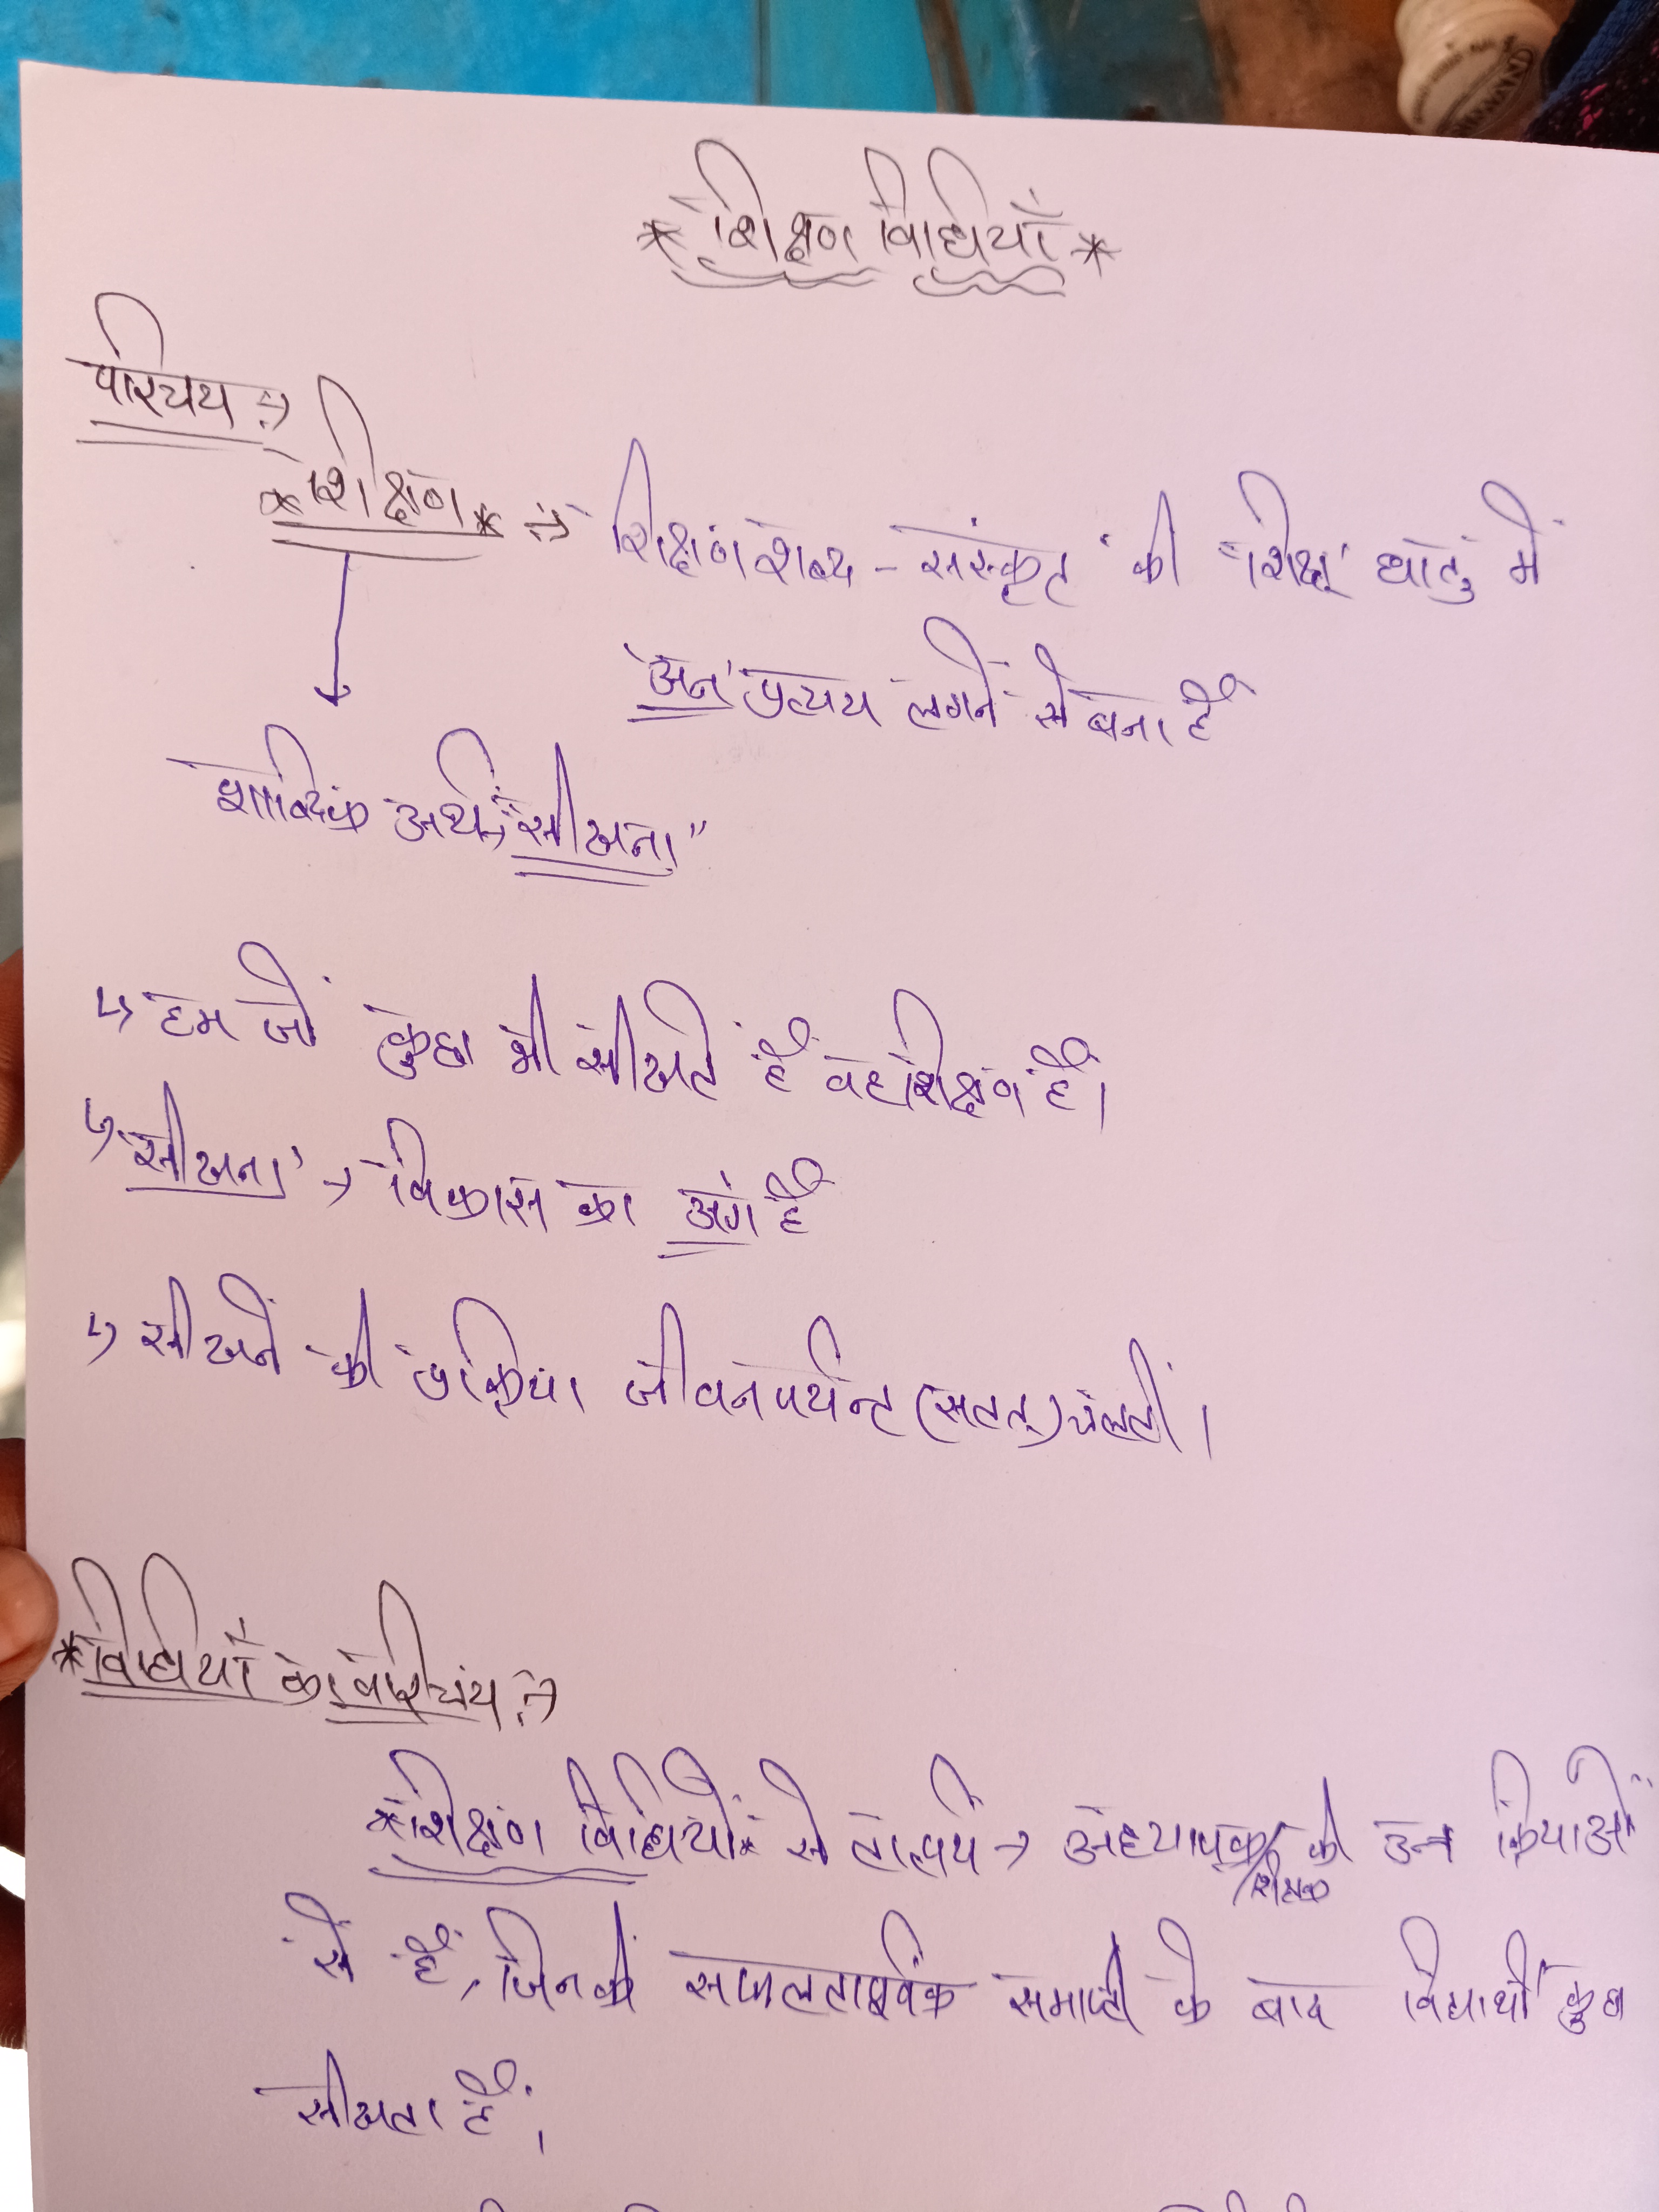 * शिक्षण विधियाँ *
परिचय :→
* शिक्षण * :→ शिक्षण शब्द - संस्कृत की 'शिक्ष्' धातु में
'अन' प्रत्यय लगने से बना है
शाब्दिक अर्थ → "सीखना"
↳ हम जो कुछ भी सीखते हैं वह शिक्षण है।
↳ 'सीखना' → विकास का अंग है
↳ सीखने की प्रक्रिया जीवनपर्यन्त (सतत्) चलती।
* विधियों का परिचय :→
* शिक्षण विधियों * से तात्पर्य → अध्यापक/शिक्षक की उन क्रियाओं
से हैं, जिनकी सफलतापूर्वक समाप्ती के बाद विद्यार्थी कुछ
सीखता हैं।